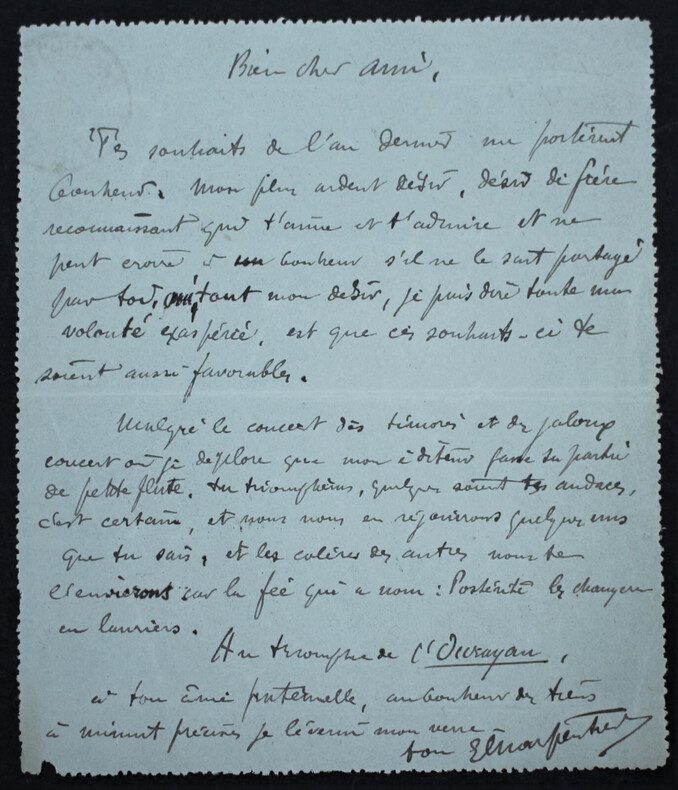 Bien cher ami,
Tes souhaits de l'an dernier me portèrent
bonheur. Mon plus ardent désir, désir de frère
reconnaissant qui t'aime et t'admire et ne
peut croire à un bonheur s'il ne le sait partagé
par toi, oui, tout mon désir, je puis dire toute ma
volonté exaspérée, est que ces souhaits-ci te
soient aussi favorables.
Malgré le concert des timorés et des jaloux
concert où je déplore que mon éditeur fasse sa partie
de petite flûte, tu triompheras, quelques soient tes audaces,
c'est certain, et nous nous en réjouirons quelques uns
que tu sais, et les colères des autres nous te
car la fée qui a nom : Postérité les changera
en lauriers.
Au triomphe de l'Ouragan,
à ton âme fraternelle, au bonheur des tiens
à minuit précises je lèverai mon verre
ton GCharpentier